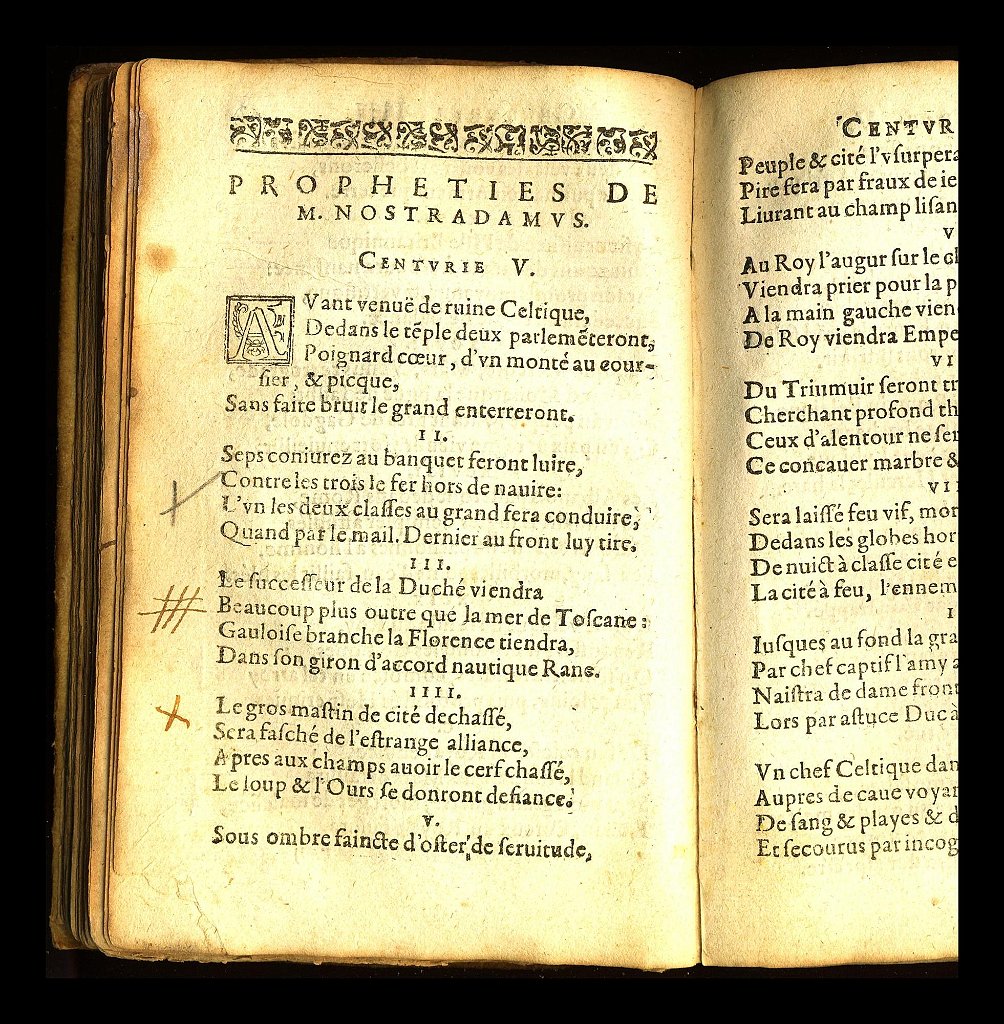 PROPHETIES DE
M. NOSTRADAMVS.
CENTVRIE V.
AVant venuë de ruine Celtique,
Dedans le tẽple deux parlemẽteront,
Poignard cœur, d'vn monté au cour-
ſier, & picque,
Sans faire bruit le grand enterreront.
II.
Seps coniurez au banquet feront luire,
Contre les trois le fer hors de nauire:
L'vn les deux claſſes au grand fera conduire,
Quand par le mail. Dernier au front luy tire.
III.
Le ſucceſſeur de la Duché viendra
Beaucoup plus outre que la mer de Toſcane:
Gauloiſe branche la Florence tiendra,
Dans ſon giron d'accord nautique Rane.
IIII.
Le gros maſtin de cité dechaſſé,
Sera faſché de l'eſtrange alliance,
Apres aux champs auoir le cerf chaſſé,
Le loup & l'Ours ſe donront defiance.
V.
Sous ombre faincte d'oſter de ſeruitude,
CENTVR
Peuple & cité l'vſurpera
Pire fera par fraux de ie
Liurant au champ liſan
V
Au Roy l'augur ſur le ch
Viendra prier pour la p
A la main gauche vien
De Roy viendra Empe
VI
Du Triumuir feront tr
Cherchant profond th
Ceux d'alentour ne ſer
Ce concauer marbre &
VII
Sera laiſſé feu vif, mor
Dedans les globes hor
De nuict à claſſe cité e
La cité à feu, l'ennem
I
Iuſques au fond la gra
Par chef captif l'amy a
Naiſtra de dame front
Lors par aſtuce Duc à
Vn chef Celtique dan
Aupres de caue voyan
De ſang & playes & d
Et ſecourus par incog